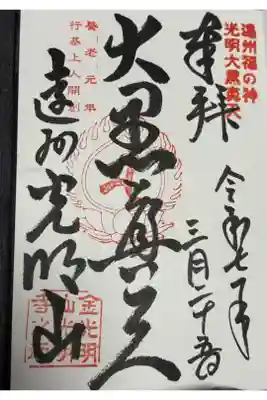 遠州福の神
光明大黒真天
奉拝
令和七年
三月二十五日
大黒真天
養老元年
行基上人開創
遠州光明山
金光明
山光明
寺